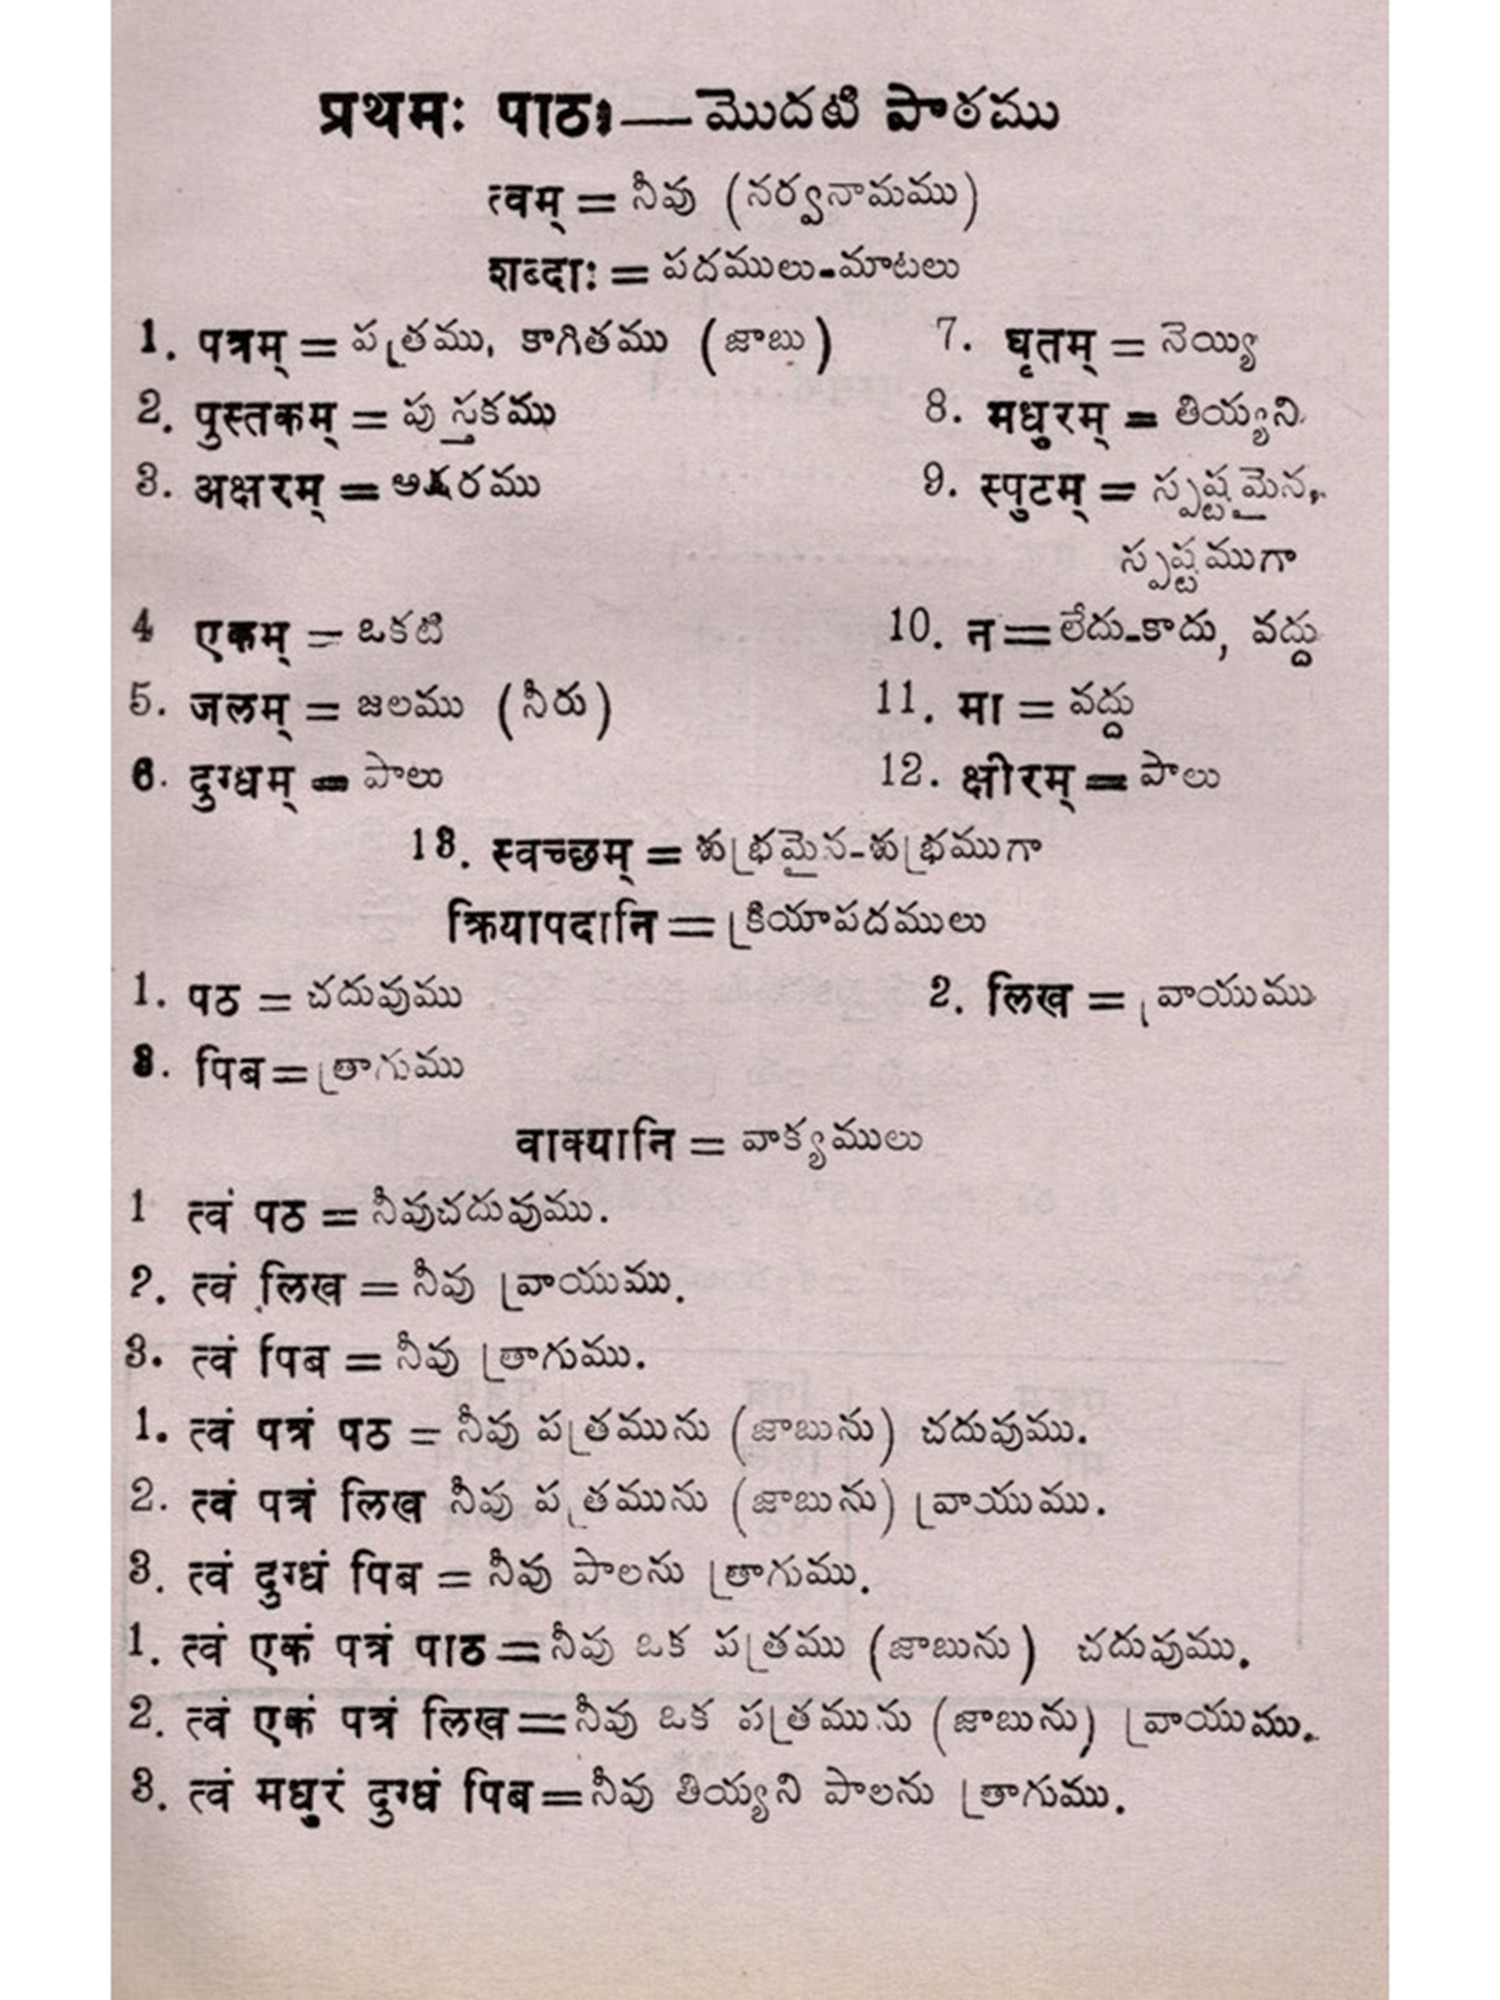 प्रथमः पाठः—మొదటి పాఠము
त्वम् = నీవు (నర్వనామము)
शब्दाः = పదములు-మాటలు
1. पत्रम् = పత్రము, కాగితము (జాబు) 7. घृतम् = నెయ్యి
2. पुस्तकम् = పుస్తకము 8. मधुरम् = తియ్యని
3. अक्षरम् = అక్షరము 9. स्पुटम् = స్పష్టమైన,
స్పష్టముగా
4 एकम् = ఒకటి 10. न = లేదు-కాదు, వద్దు
5. जलम् = జలము (నీరు) 11. मा = వద్దు
6. दुग्धम् = పాలు 12. क्षीरम् = పాలు
13. स्वच्छम् = శుభ్రమైన-శుభ్రముగా
क्रियापदानि = క్రియాపదములు
1. पठ = చదువుము 2. लिख = వ్రాయుము
3. पिब = త్రాగుము
वाक्यानि = వాక్యములు
1 त्वं पठ = నీవుచదువుము.
2. त्वं लिख = నీవు వ్రాయుము.
3. त्वं पिब = నీవు త్రాగుము.
1. त्वं पत्रं पठ = నీవు పత్రమును (జాబును) చదువుము.
2. त्वं पत्रं लिख నీవు పత్రమును (జాబును) వ్రాయుము.
3. त्वं दुग्धं पिब = నీవు పాలను త్రాగుము.
1. त्वं एकं पत्रं पाठ = నీవు ఒక పత్రము (జాబును) చదువుము.
2. त्वं एकं पत्रं लिख = నీవు ఒక పత్రమును (జాబును) వ్రాయుము.
3. त्वं मधुरं दुग्धं पिब = నీవు తియ్యని పాలను త్రాగుము.